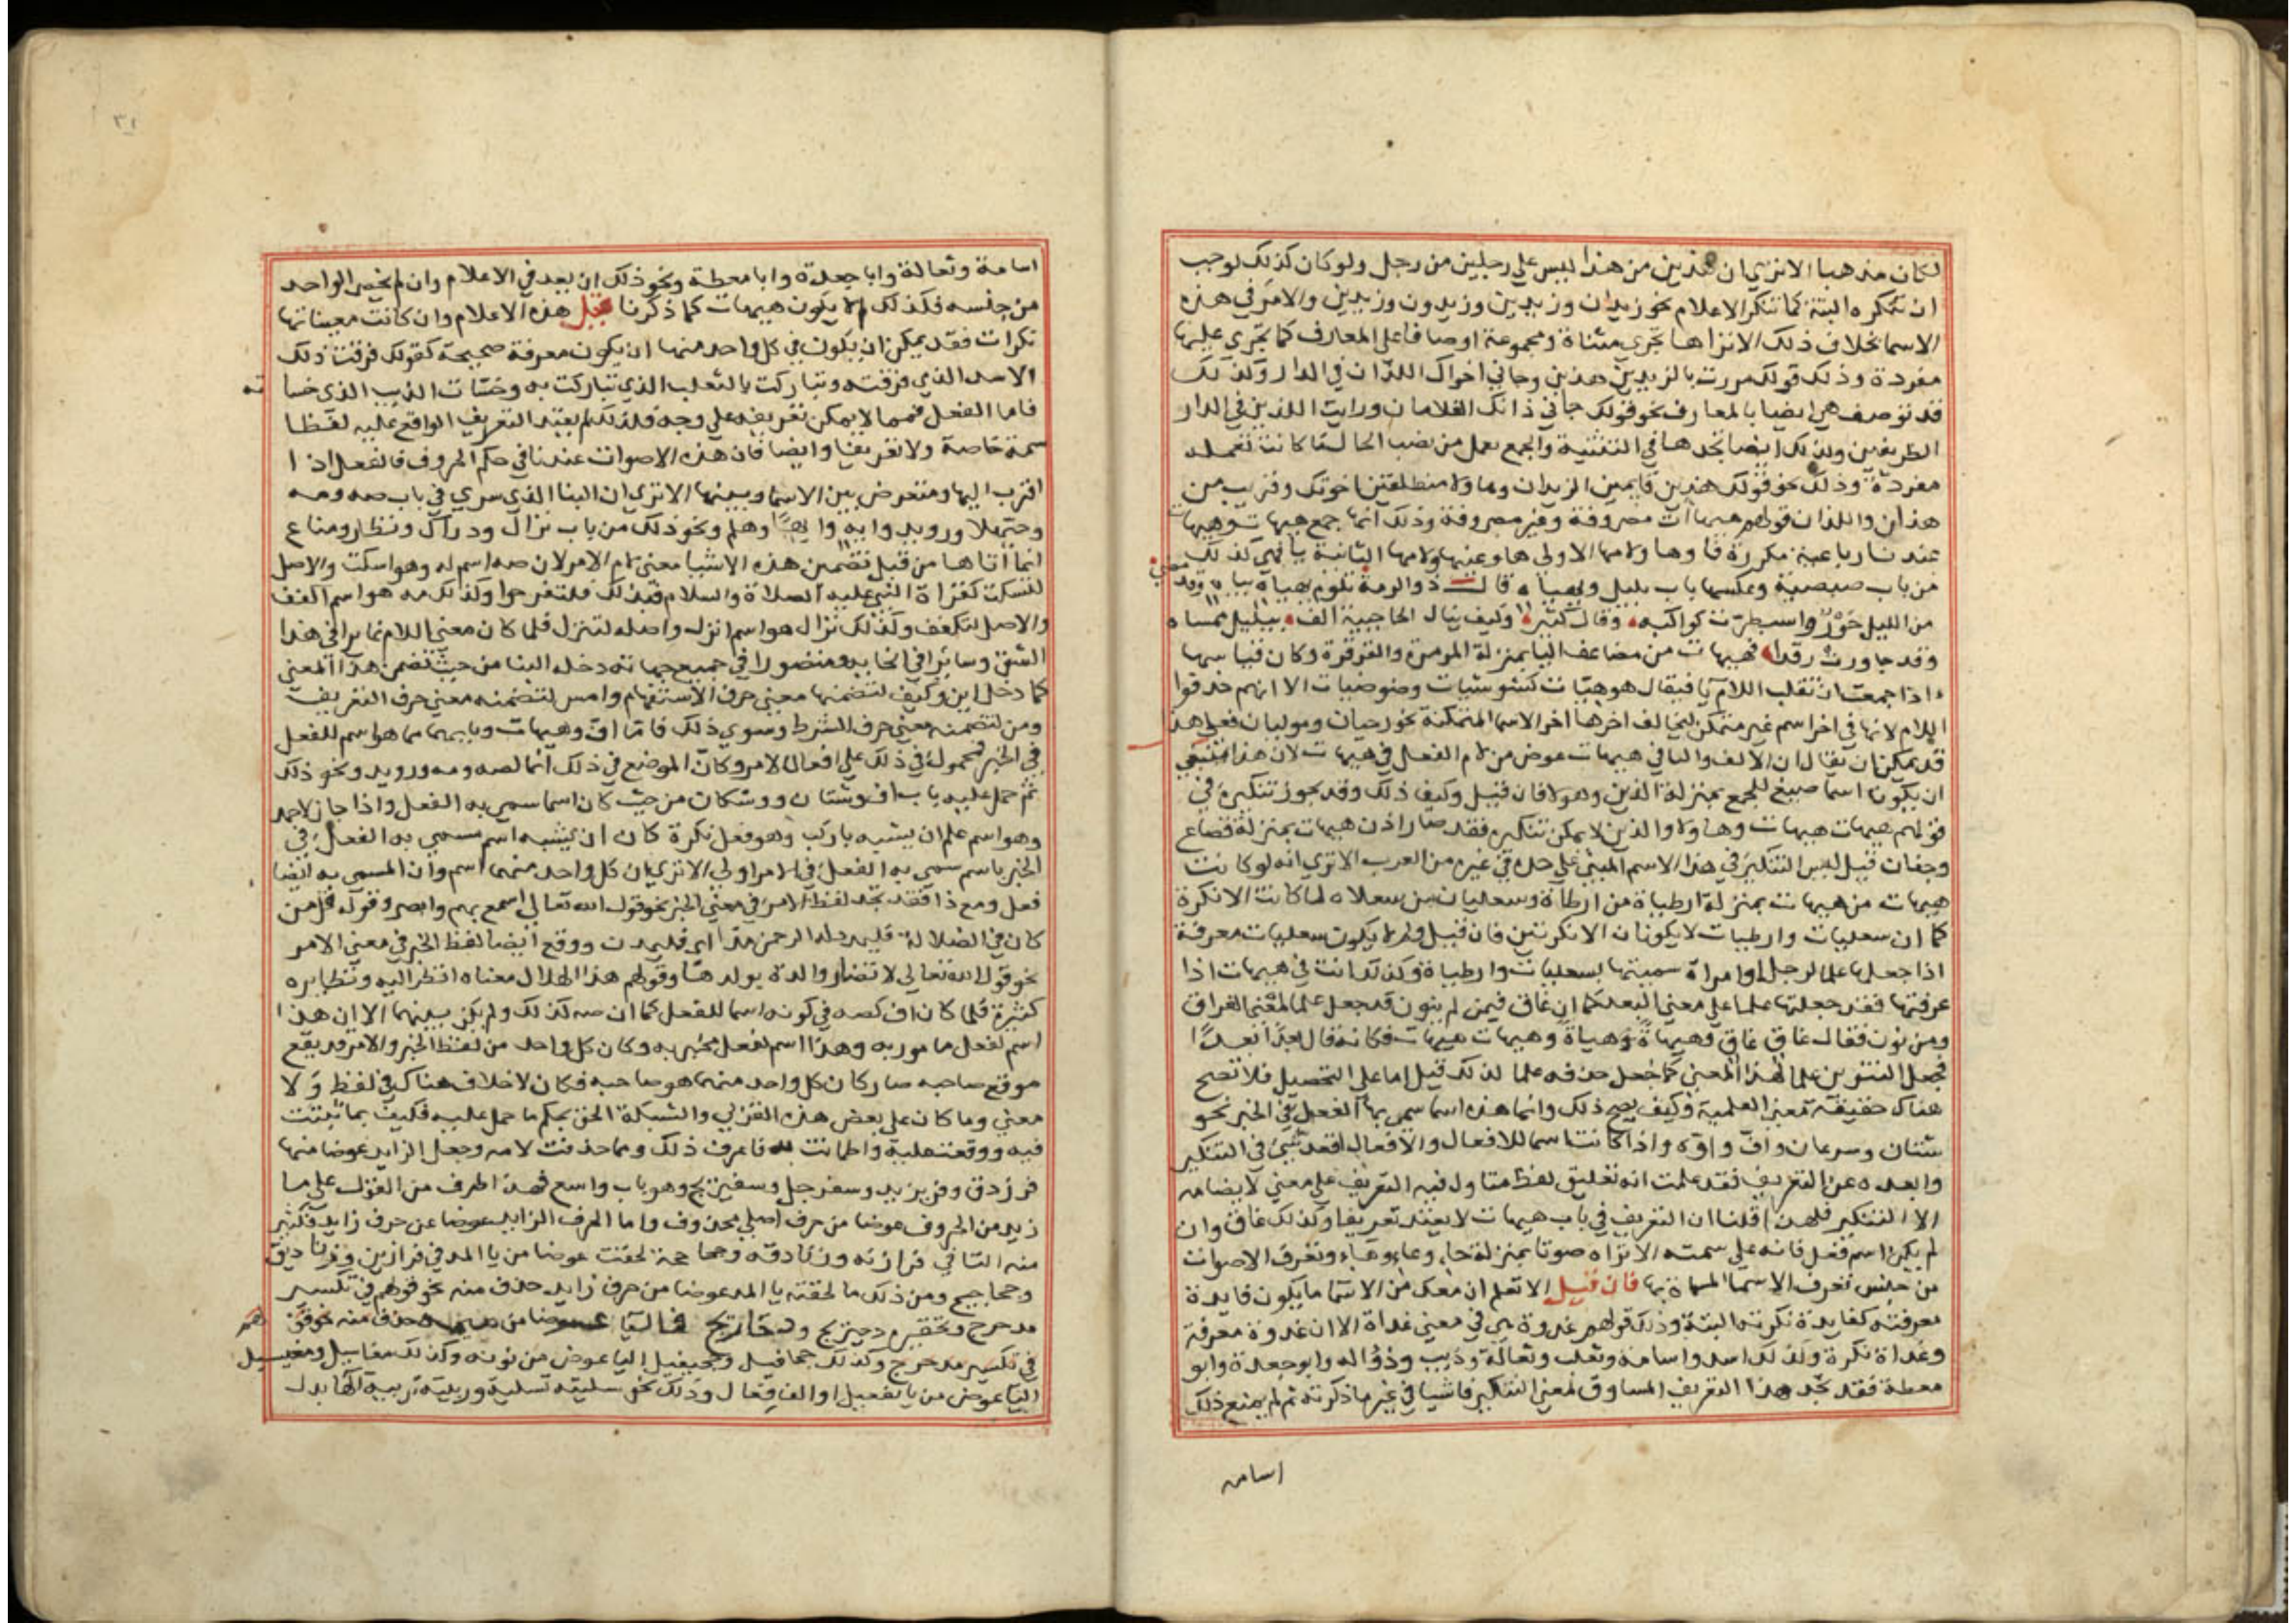 لكان مذهبا الا ترى ان هذين من هذا ليس على رجلين من رجل ولو كان كذلك لوجب
ان تنكره البتة كما تنكر الاعلام نحو زيدان وزيدين وزيدون وزيدين والامر في هذه
الاسما بخلاف ذلك الا تراها تجري مثناة ومجموعة اوصافا على المعارف كما تجري عليها
مفردة وذلك قولك مررت بالزيدين هذين وجاني اخواك اللذان في الدار وكذلك
قد توصف هي ايضا بالمعارف نحو قولك جاني ذانك الغلامان ورايت اللذين في الدار
الظريفين وكذلك ايضا تجدها في التثنية والجمع تعمل من نصب الحال ما كانت تعمله
مفردة وذلك نحو قولك هذين قايمين الزيدان وهاولا منطلقين اخوتك وقريب من
هذان واللذان قولهم هيهات مصروفة وغير مصروفة وذلك انها جمع هيهات وهيهات
عندنا رباعية مكررة فاوها ولامها الاولى ها وعينها ولامها الثانية يا فهي كذلك
من باب صيصية وعكسها باب يليل ويهياه قال ذو الرمة تلوم يهياه بياه وقد مضى
من الليل جوز واسبطرت كواكبه وقال كثير وكيف ينال الحاجبية الف بيليل ممساه
وقد جاورت رقدا فهيهات من مضاعف اليا بمنزلة المرمرة والقرقرة وكان قياسها
اذا جمعت ان تقلب اللام يا فيقال هوهيات كشوشيات وضوضيات الا انهم حذفوا
اللام لانها في اخر اسم غير متمكن ليخالف اخرها اخر الاسما المتمكنة نحو رحيان وموليان فعلى هذا
قد يمكن ان يقال ان الالف والتا في هيهات عوض من لام الفعل في هيهات لان هذا ينبغي
ان يكون اسما صيغ للجمع بمنزلة الذين وهولا فان قيل وكيف ذلك وقد يجوز تنكيره في
قولهم هيهات هيهات وهاولا والذين لا يمكن تنكيره فقد صار اذن هيهات بمنزلة قصاع
وجفان قيل ليس التنكير في هذا الاسم المبني على حده في غيره من العرب الا ترى انه لو كانت
هيهات من هيهات بمنزلة ارطيات من ارطاة وسعليات من سعلاة لما كانت الا نكرة
كما ان سعليات وارطيات لا يكونان الا نكرتين فان قيل ولم لا يكون سعليات معرفة
اذا جعلها علما لرجل او امراة سميتها بسعليات وارطيات وكذلك انت في هيهات اذا
عرفتها فقد جعلتها علما على معنى البعد كما ان غاق فيمن لم ينون قد جعل علما لمعنى الفراق
ومن نون فقال غاق غاق وهيهاة وهيهاة وهيهات هيهات فكانه قال بعدا بعدا
فجعل التنوين علما لهذا المعنى كما جعل حذفه علما لذلك قيل اما على التحصيل فلا تصح
هناك حقيقة معنى العلمية وكيف يصح ذلك وانما هذه اسما سمي بها الفعل في الخبر نحو
شتان وسرعان واف واوه واذا كانت اسما للافعال والافعال اقعد شي في التنكير
وابعده عن التعريف فقد علمت انه تعليق لفظ متاول فيه التعريف على معنى لا يضامه
الا التنكير فلهذا قلنا ان التعريف في باب هيهات لا يعتد تعريفا وكذلك غاق وان
لم يكن اسم فعل فانه على سمته الا تراه صوتا بمنزلة حاء وعاء وهاء وتعرف الاصوات
من جنس تعرف الاسما المسماة بها فان قيل الا تعلم ان معك من الاسما ما يكون فايدة
معرفته كفايدة نكرته البتة وذلك قولهم غدوة هي في معنى غداة الا ان غدوة معرفة
وغداة نكرة وكذلك اسد واسامه وثعلب وثعالة وذيب وذؤاله وابو جعدة وابو
معطة فقد تجد هذا التعريف المساوق لمعنى التنكير فاشيا في غير ما ذكرته ثم لم يمنع ذلك
اسامه
٣١
اسامة وثعالة وابا جعدة وابا معطة ونحو ذلك ان يعد في الاعلام وان لم يخص الواحد
من جنسه فكذلك لم لا يكون هيهات كما ذكرنا قيل هذه الاعلام وان كانت معيناتها
نكرات فقد يمكن ان يكون في كل واحد منها ان يكون معرفة صحيحة كقولك فرقت ذلك
الاسد الذي فرقته وتباركت بالثعلب الذي تباركت به وخسات الذيب الذي خسا ته
فاما الفعل فمما لا يمكن تعريفه على وجه فلذلك لم يعتد التعريف الواقع عليه لفظا
سمة خاصة ولا تعريفا وايضا فان هذه الاصوات عندنا في حكم الحروف فالفعل اذا
اقرب اليها ومتعرض بين الاسما وبينها الا ترى ان البنا الذي سرى في باب صه ومه
وحيهلا ورويد وايه وايها وهلم ونحو ذلك من باب نزال ودراك ونظار ومناع
انما اتاها من قبل تضمين هذه الاشيا معنى لام الامر لان صه اسم له وهو اسكت والاصل
لتسكت كقراة النبي عليه الصلاة والسلام فبذلك فلتفرحوا وكذلك مه هو اسم اكفف
والاصل لتكفف وكذلك نزال هو اسم انزل واصله لتنزل فلما كان معنى اللام عابرا في هذا
الشق وسايرا في انحايه ومتصورا في جميع جهاته دخله البنا من حيث تضمن هذا المعنى
كما دخل اين وكيف لتضمنها معنى حرف الاستفهام وامس لتضمنه معنى حرف التعريف
ومن لتضمنه معنى حرف الشرط وسوى ذلك فاما اف وهيهات وبابهما مما هو اسم للفعل
في الخبر فمحمول في ذلك على افعال الامر وكان الموضع في ذلك انما لصه ومه ورويد ونحو ذلك
ثم حمل عليه باب اف وشتان ووشكان من حيث كان اسما سمي به الفعل واذا جاز لاحمد
وهو اسم علم ان يشبه باركب وهو فعل نكرة كان ان يشبه اسم مسمى به الفعل في
الخبر باسم سمي به الفعل في الامر اولى الا ترى ان كل واحد منهما اسم وان المسمى به ايضا
فعل ومع ذا فقد تجد لفظ الامر في معنى الخبر نحو قول الله تعالى اسمع بهم وابصر وقوله قل من
كان في الضلالة فليمدد له الرحمن مدا اي فليمدن ووقع ايضا لفظ الخبر في معنى الامر
نحو قول الله تعالى لا تضار والدة بولدها وقولهم هذا الهلال معناه انظر اليه ونظايره
كثيرة فلما كان اف كصه في كونه اسما للفعل كما ان صه كذلك ولم يكن بينهما الا ان هذا
اسم لفعل مامور به وهذا اسم لفعل مخبر به وكان كل واحد من لفظ الخبر والامر قد يقع
موقع صاحبه صار كان كل واحد منهما هو صاحبه فكان لا خلاف هناك في لفظ ولا
معنى وما كان على بعض هذه القربى والشبكة الحق بحكم ما حمل عليه فكيف بما ثبتت
فيه ووقعت عليه واطمانت به فاعرف ذلك ومما حذفت لامه وجعل الزايد عوضا منها
فرزدق وفريزيد وسفرجل وسفيريج وهو باب واسع فهذا طرف من القول على ما
زيد من الحروف عوضا من حرف اصلي محذوف واما الحرف الزايد عوضا عن حرف زايد فكثير
منه التا في فرازنة وزنادقة وجحاجحة لحقت عوضا من يا المد في فرازين وزناديق
وجحاجيج ومن ذلك ما لحقته يا المد عوضا من حرف زايد حذف منه نحو قولهم في تكسير
مدحرج وتحقيره دحيريج ودحاريج فاليا عوضا من ميمه حذف منه نحو قولهم
في تكسير مدحرج وكذلك جحافيل وجحيفيل اليا عوض من نونه وكذلك مغاسيل ومغيسيل
اليا عوض من يا تفعيل او الف فعال وذلك نحو سليته تسلية وربيته تربية الها بدل